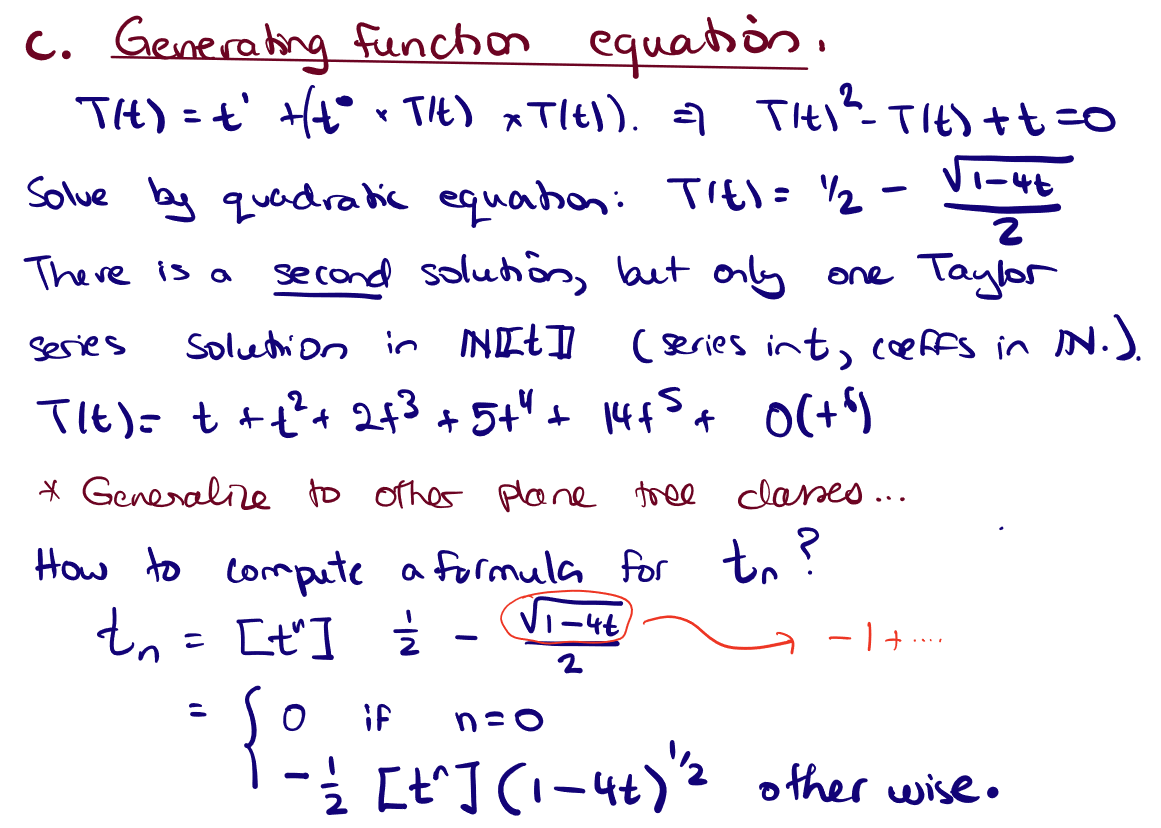 c. Generating function equation.
T(t) = t¹ + (t⁰ × T(t) × T(t)). ⇒ T(t)² - T(t) + t = 0
Solve by quadratic equation: T(t) = 1/2 - √(1-4t)/2
There is a second solution, but only one Taylor
series solution in ℕ[[t]] (series in t, coeffs in ℕ.).
T(t) = t + t² + 2t³ + 5t⁴ + 14t⁵ + O(t⁶)
* Generalize to other plane tree classes...
How to compute a formula for tₙ?
tₙ = [tⁿ] 1/2 - √(1-4t)/2 → -1 + ....
= { 0 if n=0
-1/2 [tⁿ] (1-4t)^1/2 otherwise.